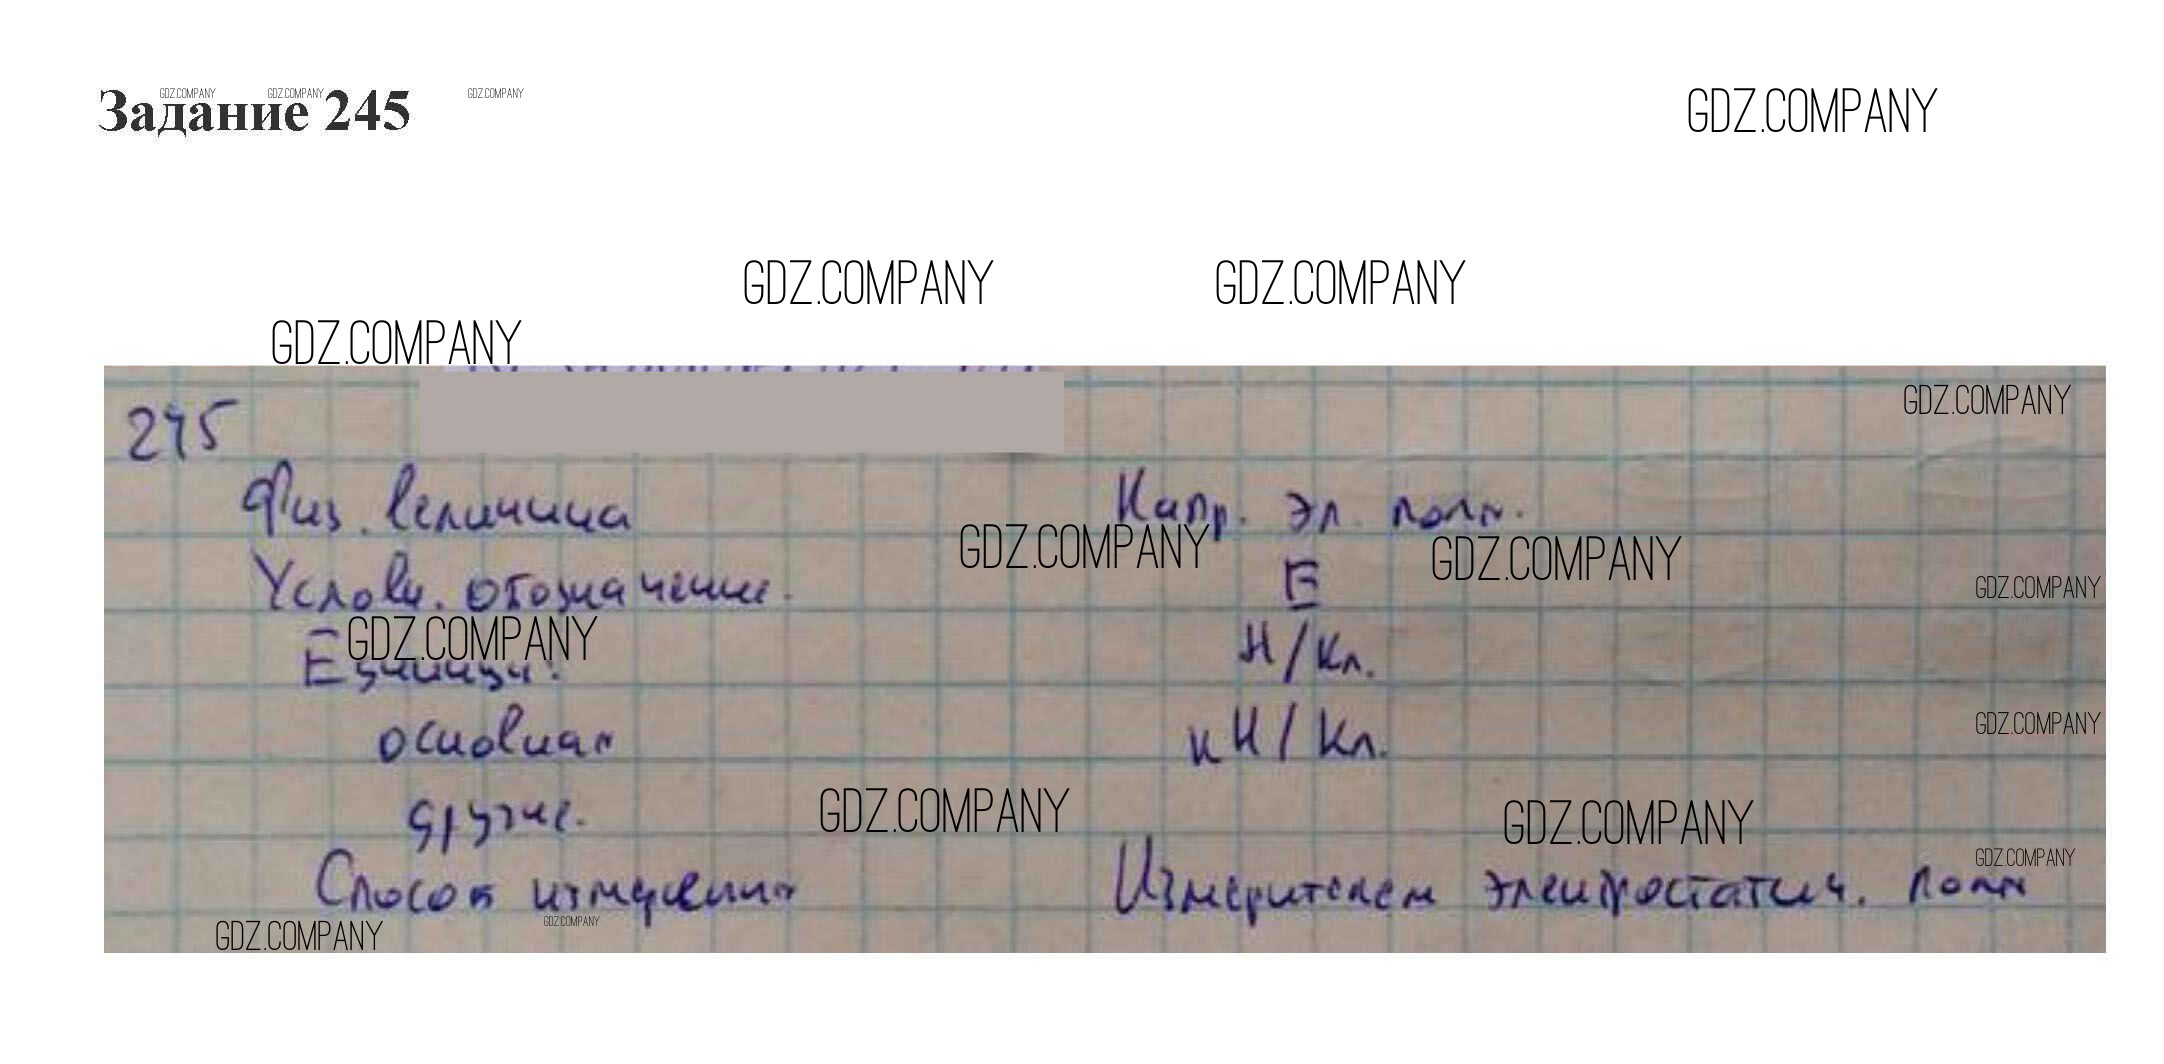 Задание 245
GDZ.COMPANY GDZ.COMPANY GDZ.COMPANY
GDZ.COMPANY
GDZ.COMPANY GDZ.COMPANY
GDZ.COMPANY
245
GDZ.COMPANY
Физ. величина Напр. эл. поля.
GDZ.COMPANY GDZ.COMPANY
Условн. обозначение. E
GDZ.COMPANY
GDZ.COMPANY
Единицы: Н/Кл.
основная кН/Кл.
GDZ.COMPANY
другие.
GDZ.COMPANY GDZ.COMPANY
GDZ.COMPANY
Способ измерения Измерителем электростатич. поля
GDZ.COMPANY GDZ.COMPANY